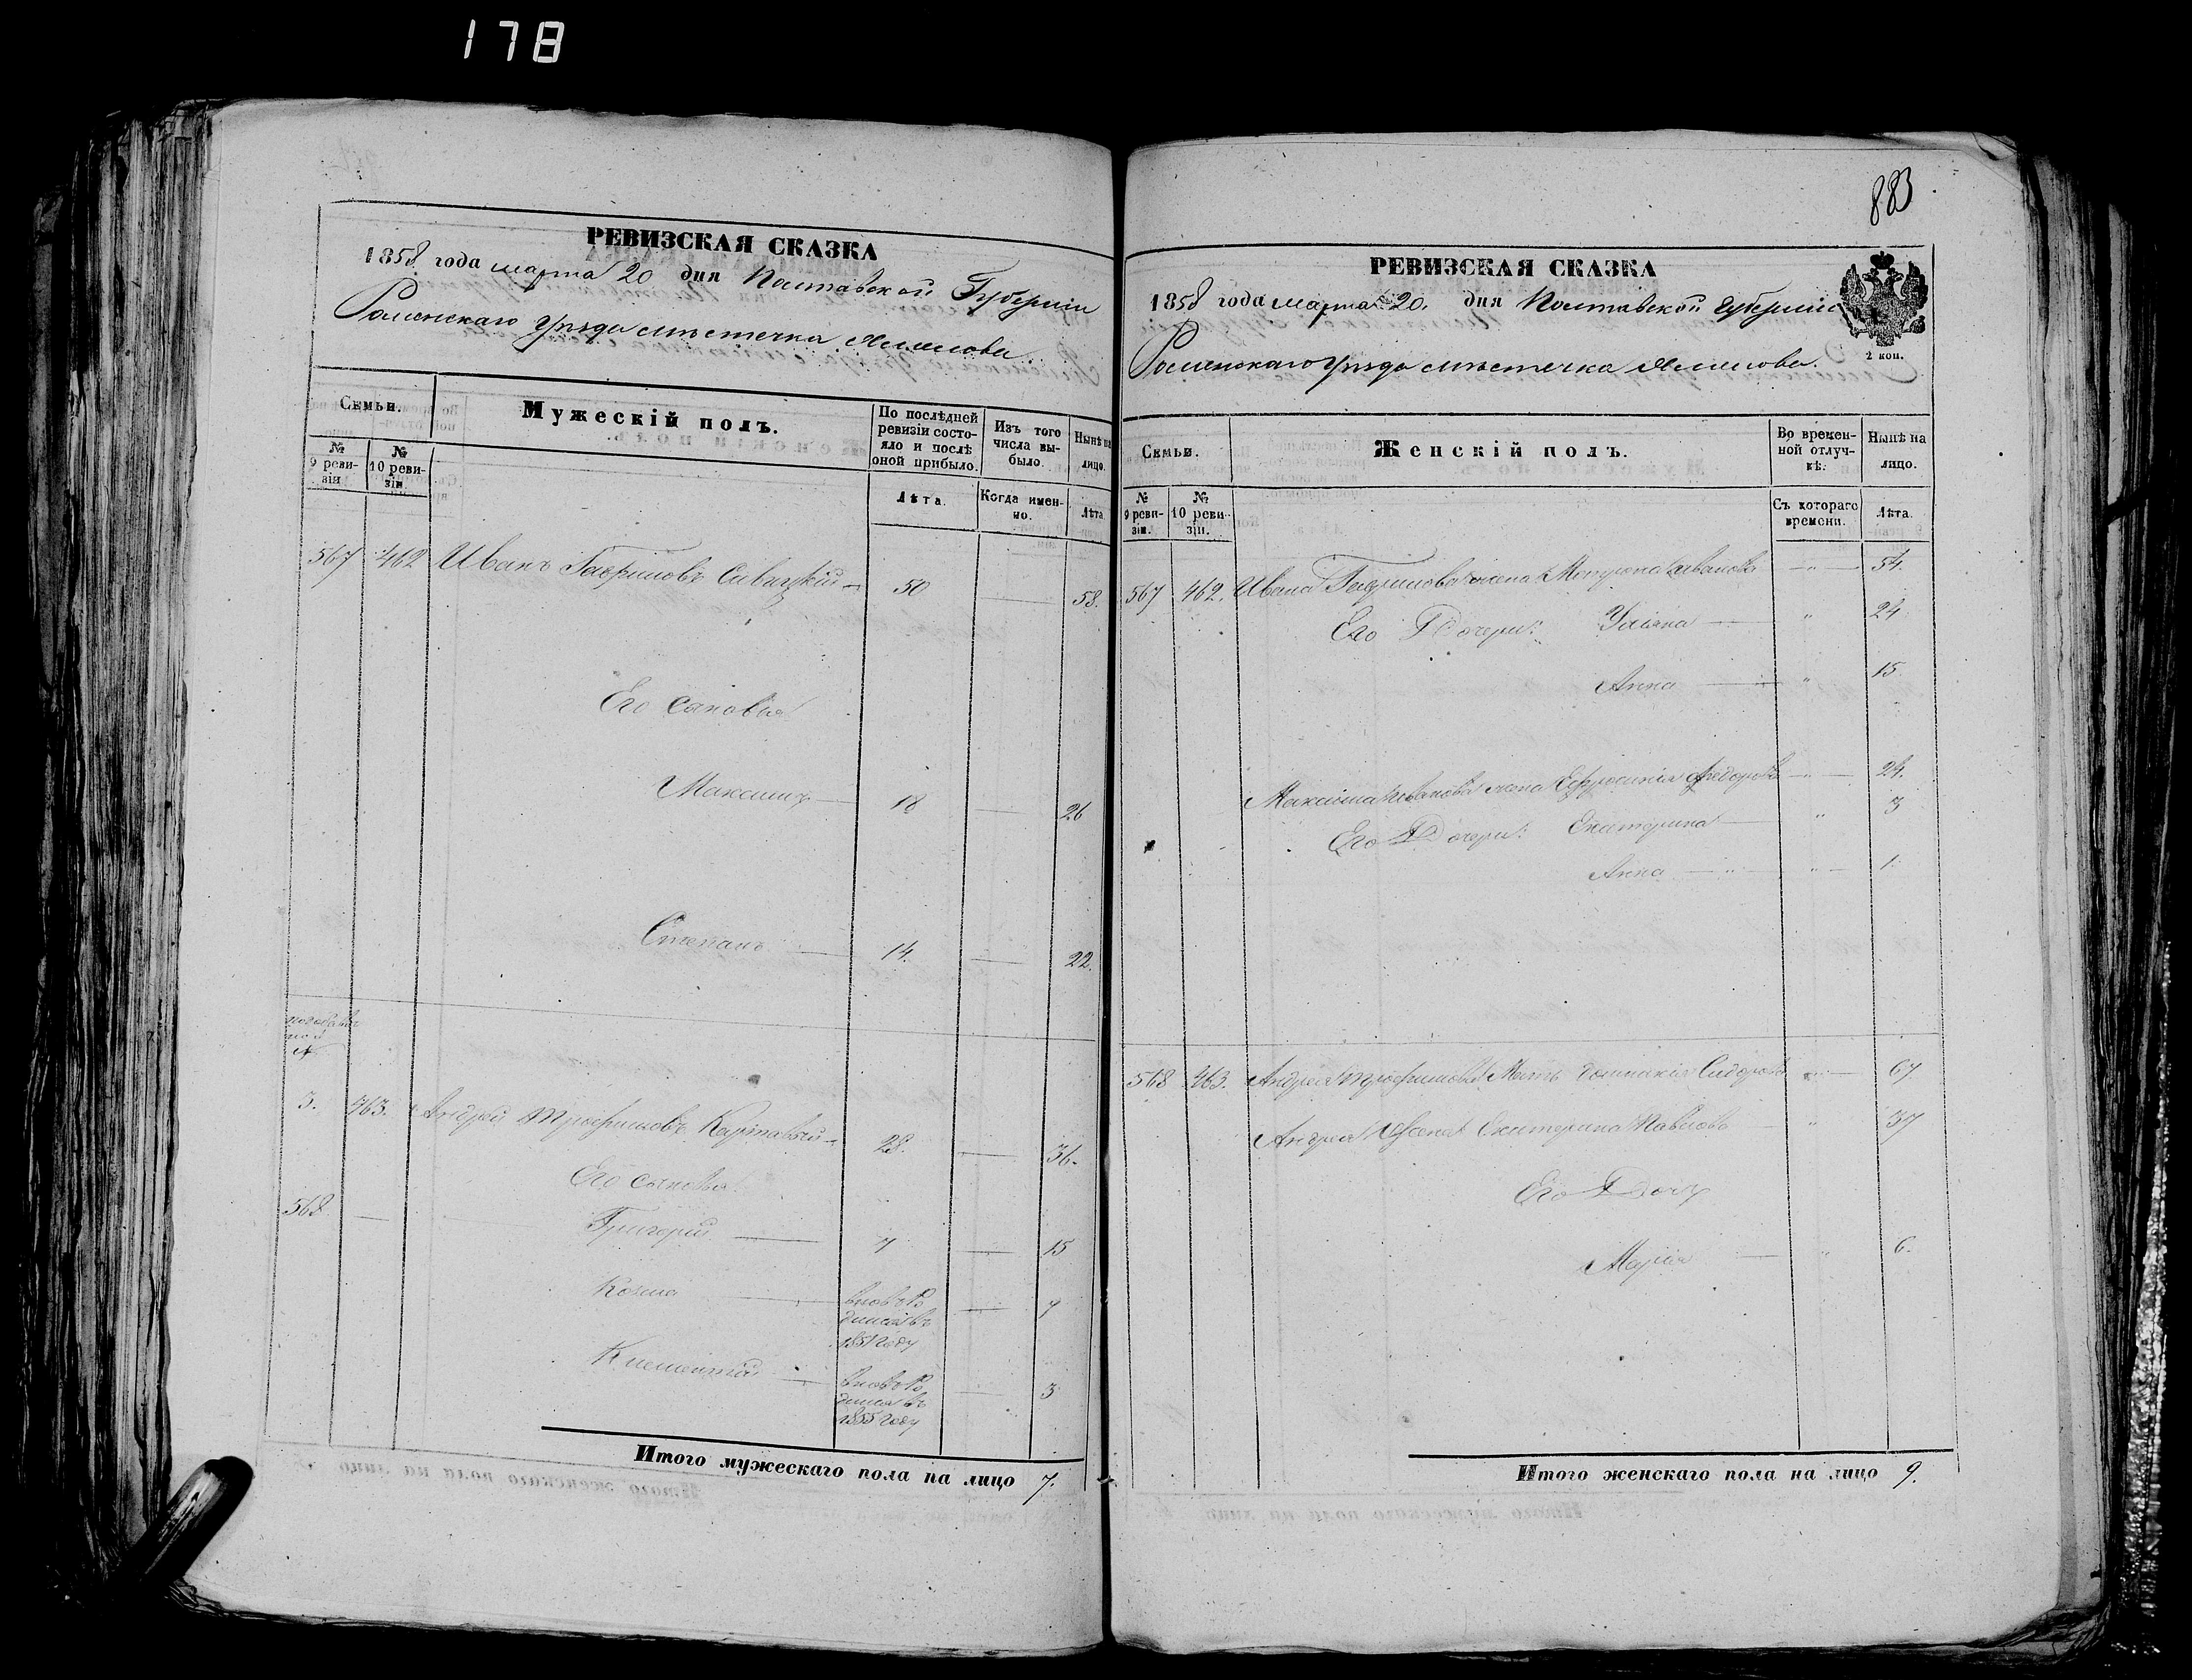 178
РЕВИЗСКАЯ СКАЗКА
1858 года марта 20 дня Полтавской Губерніи
Роменскаго уѣзда мѣстечка
Семьи.
Мужескій полъ.
По послѣдней ревизіи состояло и послѣ оной прибыло.
Изъ того числа выбыло.
Нынѣ на лицо.
№ 9 ревизіи
№ 10 ревизіи.
Лѣта.
Когда именно.
Лѣта.
567 462 Иванъ Гавриловъ 50 — 58.
Его сыновья
Максимъ — 18 — 26
Степанъ — 14. — 22.
3. 463. Андрей Трофимовъ 28. — 36.
Его сыновья
568 —
Григорій — 7 — 15
Козма — вновь ро
дился въ
1851 году — 7
Климентій — вновь ро
дился въ
1855 году — 3
Итого мужескаго пола на лицо 7.
883
РЕВИЗСКАЯ СКАЗКА
1858 года марта 20. дня Полтавской губерніи
2 коп.
Роменскаго уѣзда мѣстечка
Семьи.
Женскій полъ.
Во временной отлучкѣ.
Нынѣ на лицо.
№ 9 ревизіи.
№ 10 ревизіи.
Съ котораго времени.
Лѣта.
567 462. Ивана Гаврилова жена Иванова — " — 54.
Его Дочери: Уліяна — " 24
Анна — " 15
Максима Иванова жена Ефросинія Федорова — " — 24.
Его Дочери: Екатерина — " 3
Анна — " — " — 1
568 463. Андрея Трофимова Мать Домникія Сидорова — " — 67
Андрея Жена Екатерина Павлова — " 37
Его Дочь
Марія — " 6.
Итого женскаго пола на лицо 9.